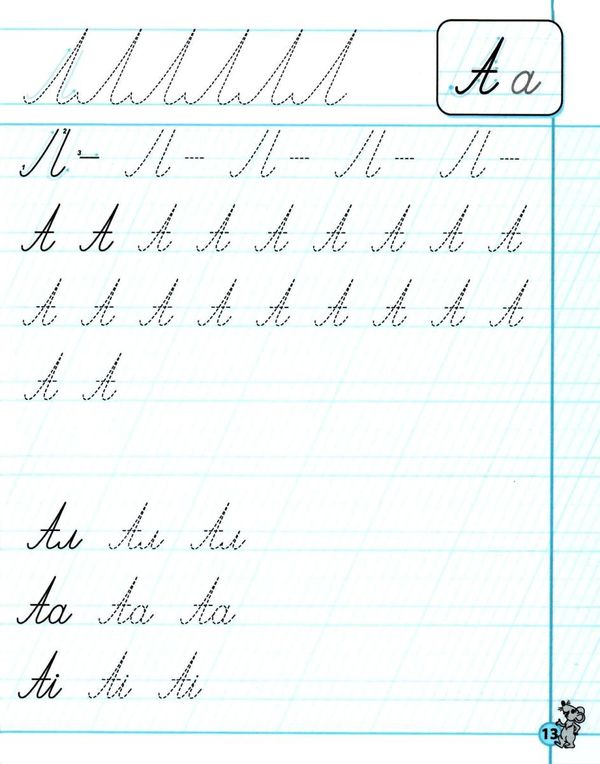 А а
Л — Л — Л — Л — Л —
А А А А А А А А А
А А А А А А А А А
А А
Ал Ал Ал
Аа Аа Аа
Аі Аі Аі
13